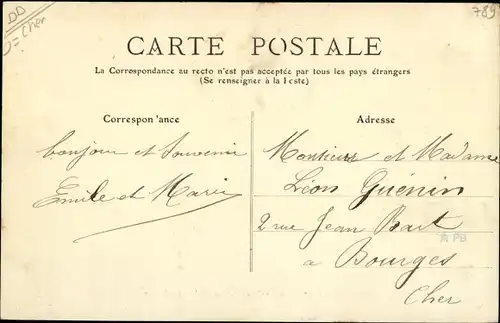 DD
D = Cher
789
CARTE POSTALE
La Correspondance au recto n'est pas acceptée par tous les pays étrangers
(Se renseigner à la Poste)
Correspon'ance
Adresse
bonjour et Souvenir
Emile et Marie
Monsieur et Madame
Léon Guénin
2 rue Jean Bart
a Bourges
Cher
PB